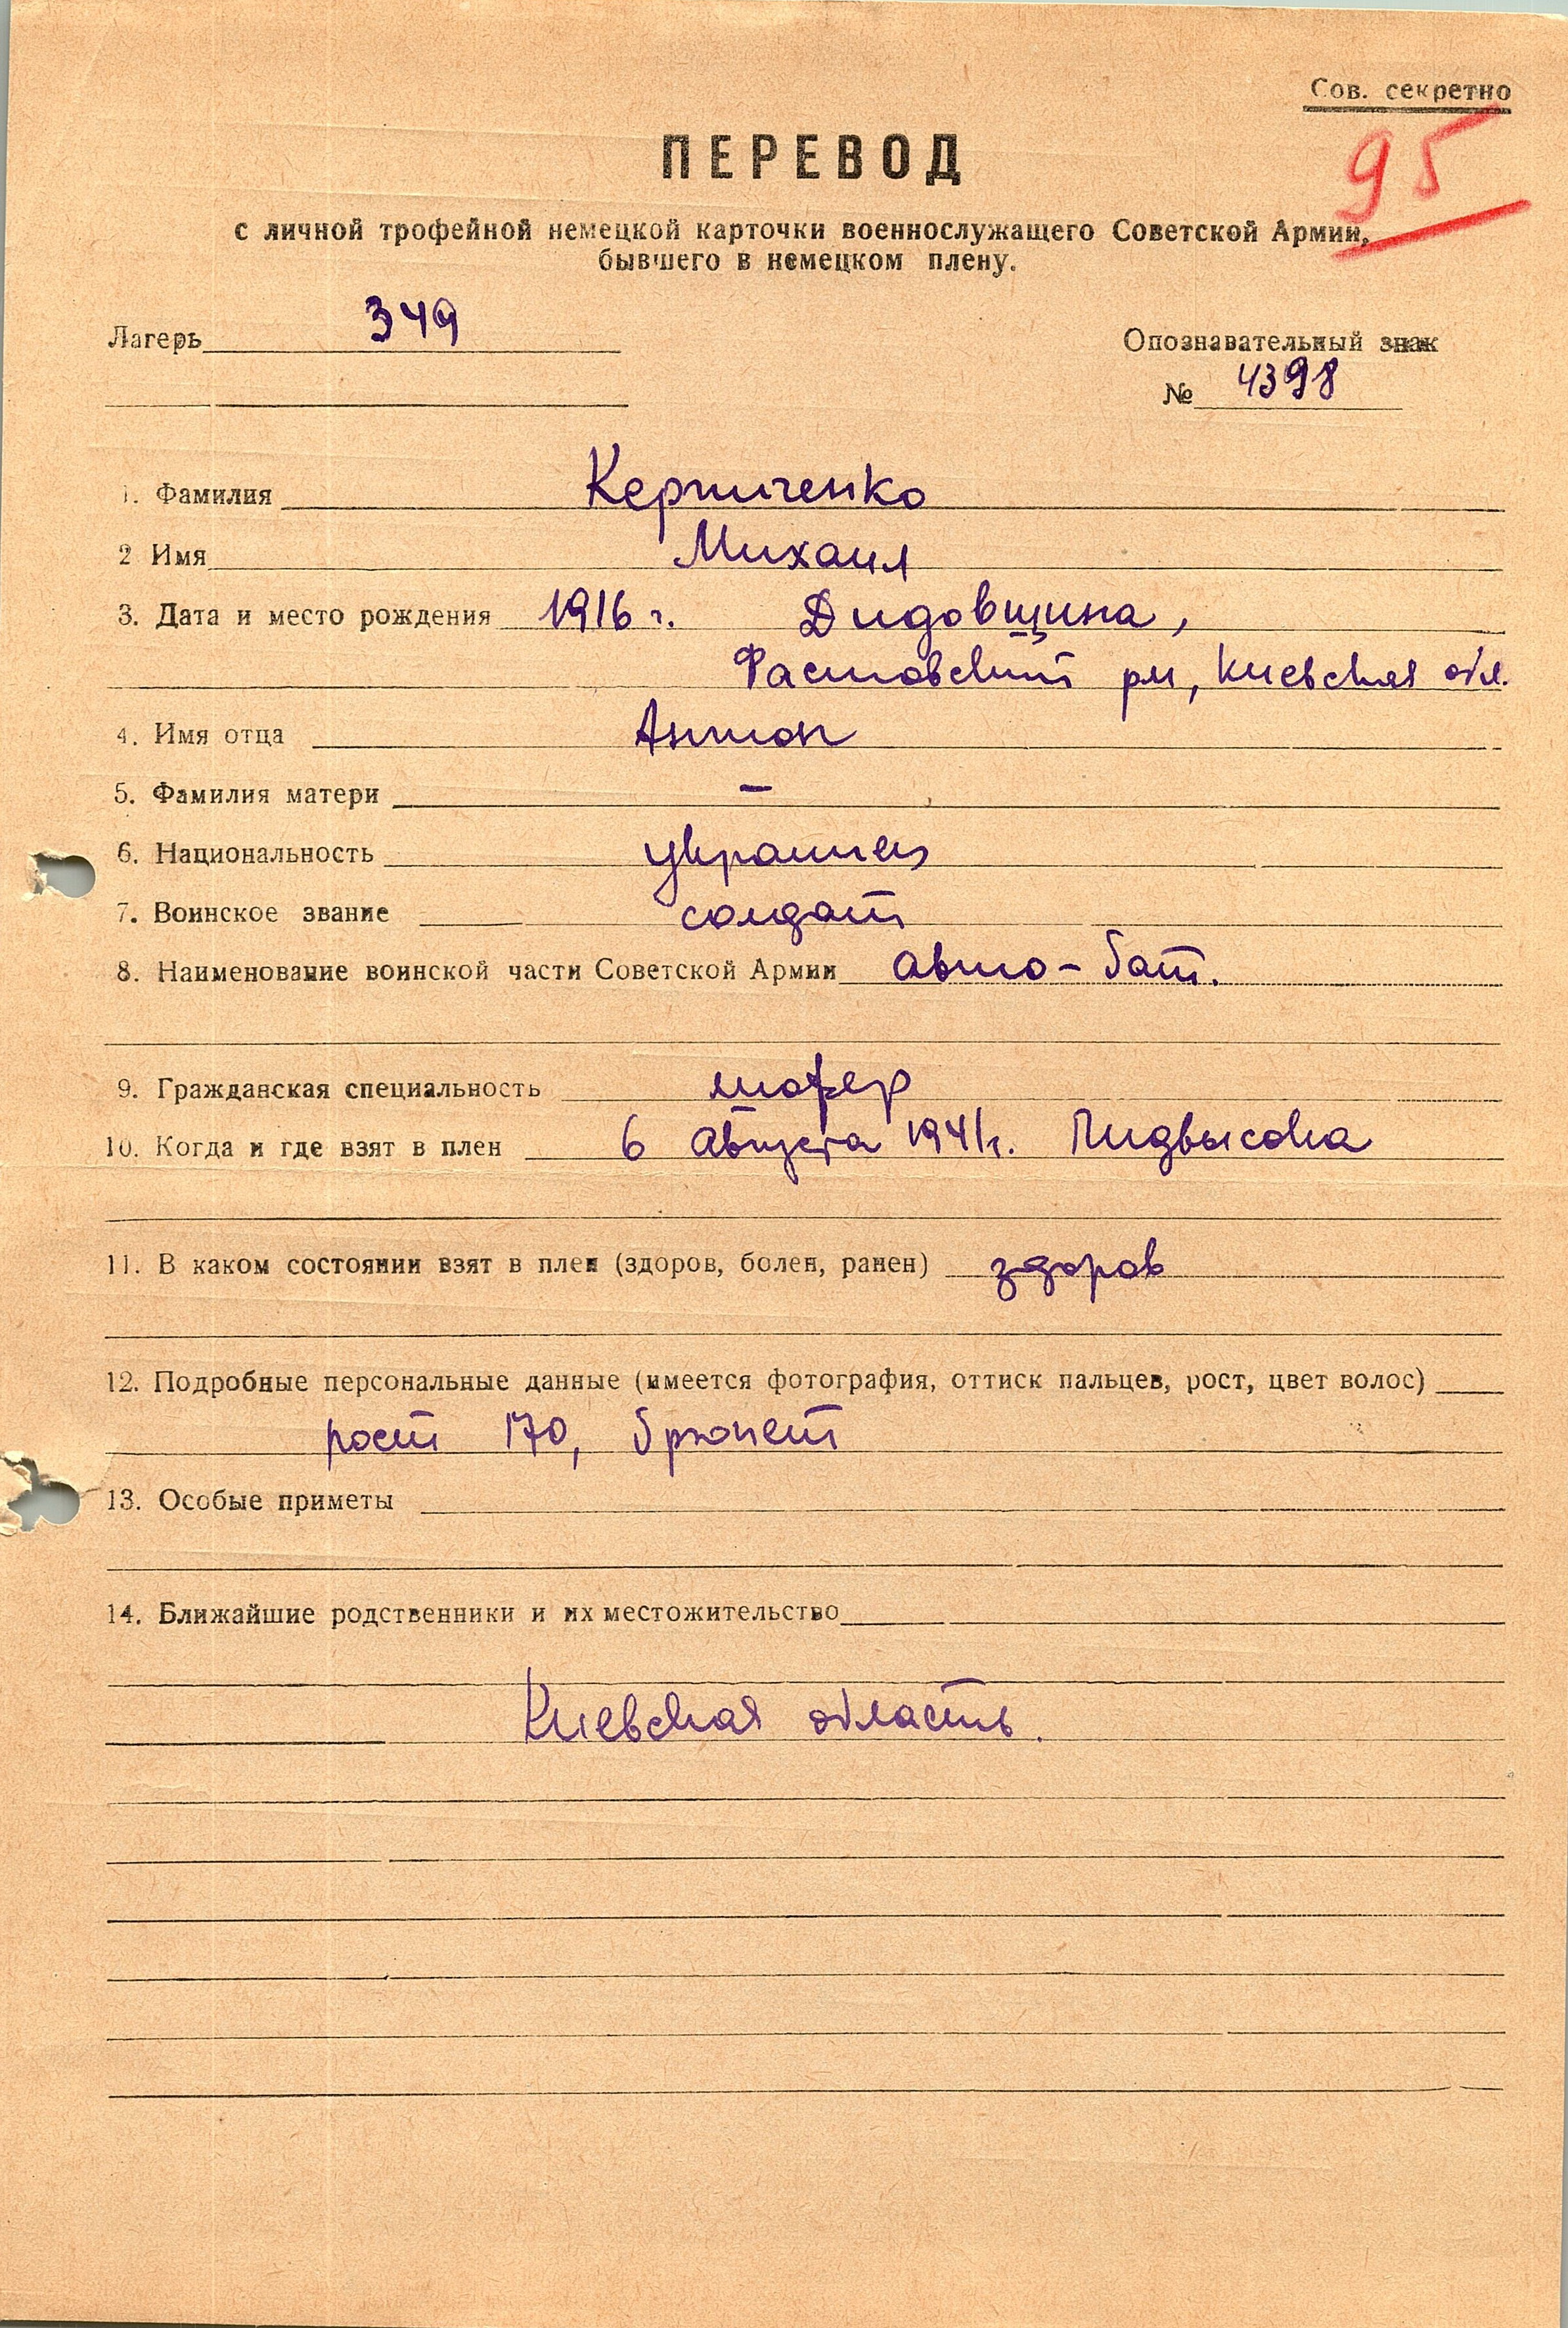 Сов. секретно
95
ПЕРЕВОД
с личной трофейной немецкой карточки военнослужащего Советской Армии,
бывшего в немецком плену.
Лагерь 349
Опознавательный знак
№ 4398
1. Фамилия Керпиченко
2 Имя Михаил
3. Дата и место рождения 1916 г. Дидовщина,
Фастовский рн, Киевская обл.
4. Имя отца Антон
5. Фамилия матери –
6. Национальность украинец
7. Воинское звание солдат
8. Наименование воинской части Советской Армии авто-бат.
9. Гражданская специальность шофер
10. Когда и где взят в плен 6 августа 1941г. Пидвысока
11. В каком состоянии взят в плен (здоров, болен, ранен) здоров
12. Подробные персональные данные (имеется фотография, оттиск пальцев, рост, цвет волос)
рост 170, брюнет
13. Особые приметы
14. Ближайшие родственники и их местожительство
Киевская область.